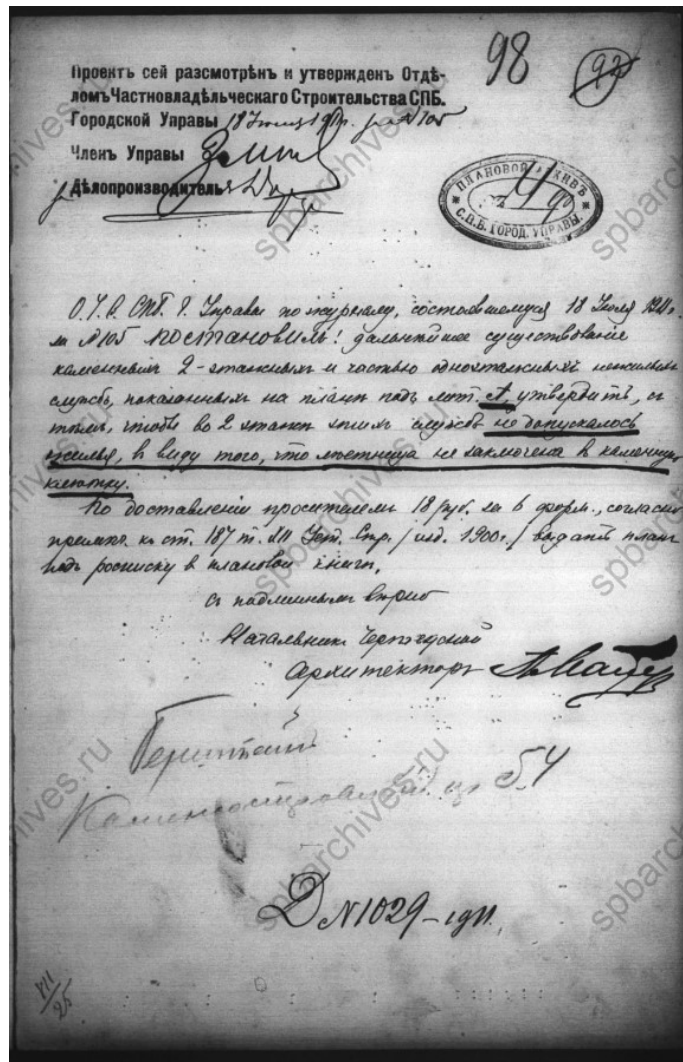 98
92
Проектъ сей разсмотрѣнъ и утвержденъ Отдѣ-
ломъ Частновладѣльческаго Строительства СПБ.
Городской Управы 18 Іюля 1911г. № 105
Членъ Управы
Дѣлопроизводитель
ПЛАНОВОЙ АРХИВЪ
С.П.Б. ГОРОД. УПРАВЫ.
О.Ч.С. СПб. Г. Управы по журналу, состоявшемуся 18 Іюля 1911г.
за №105 постановилъ: дальнѣйшее существованіе
каменныхъ 2-этажныхъ и частью одноэтажныхъ нежилыхъ
службъ, показанныхъ на планѣ подъ лит. А, утвердить, съ
тѣмъ, чтобы во 2 этажѣ этихъ службъ не допускалось
жилья, въ виду того, что лѣстница не заключена въ каменную
клѣтку.
По доставленіи просителемъ 18 руб. за 6 форм., согласно
примѣч. къ ст. 187 т. XII Уст. Стр. /изд. 1900г./ выдать планъ
подъ росписку въ плановой книгѣ.
Съ подлиннымъ вѣрно
Начальникъ Чертежной
Архитекторъ
Каменноостровскій пр 54
Д №1029-1911.
VII/25
spbarchives.ru